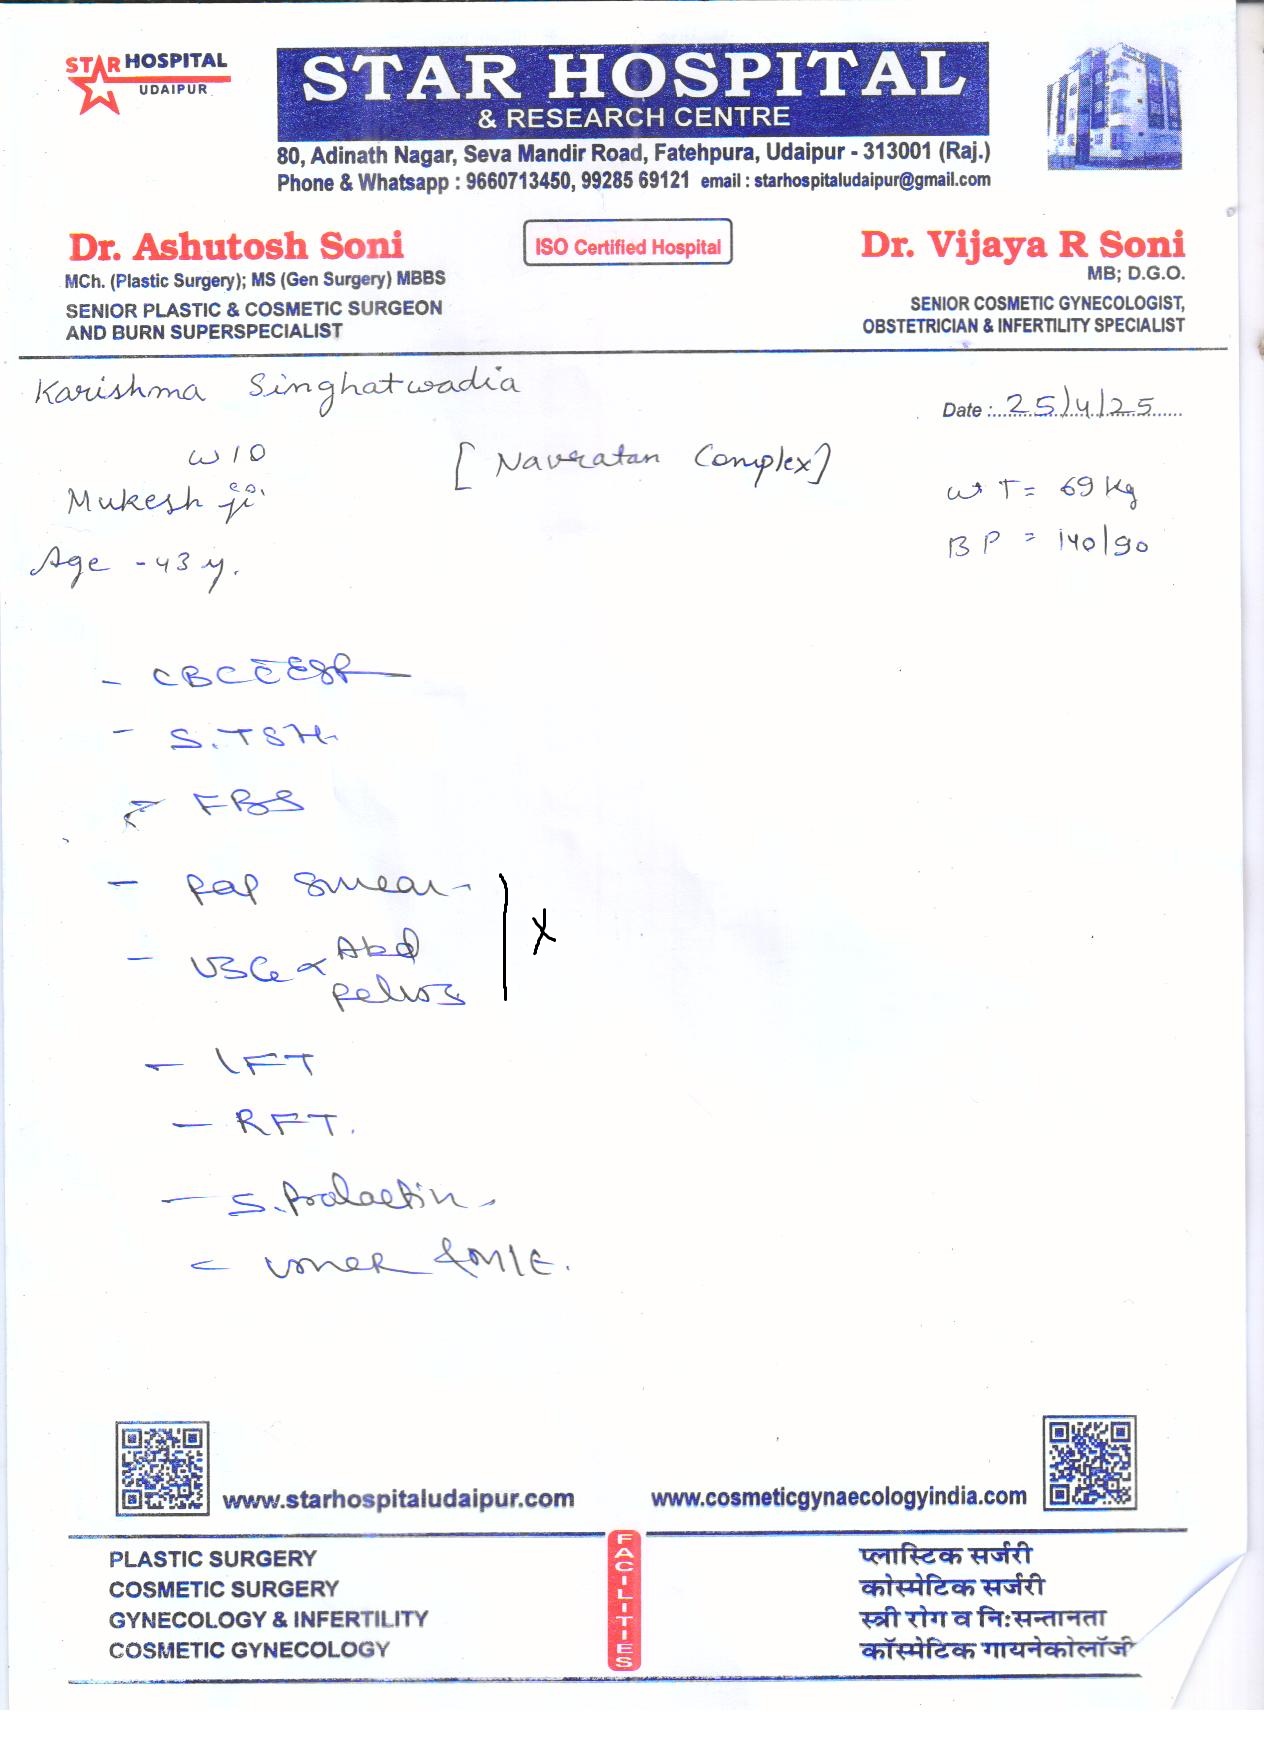 STAR HOSPITAL
UDAIPUR
STAR HOSPITAL
& RESEARCH CENTRE
80, Adinath Nagar, Seva Mandir Road, Fatehpura, Udaipur - 313001 (Raj.)
Phone & Whatsapp : 9660713450, 99285 69121 email : starhospitaludaipur@gmail.com
Dr. Ashutosh Soni
MCh. (Plastic Surgery); MS (Gen Surgery) MBBS
SENIOR PLASTIC & COSMETIC SURGEON
AND BURN SUPERSPECIALIST
ISO Certified Hospital
Dr. Vijaya R Soni
MB; D.G.O.
SENIOR COSMETIC GYNECOLOGIST,
OBSTETRICIAN & INFERTILITY SPECIALIST
Karishma Singhatwadia
Date : 25/4/25
W/O
[Navratan Complex]
Mukesh ji
WT = 69 Kg
Age - 43 y.
BP = 140/90
- CBC c̄ ESR
- S.TSH.
- FBS
- Pap Smear -
- USG Abd
Pelvis
X
- LFT
- RFT.
- S. Prolactin -
- Urine R/M/E.
www.starhospitaludaipur.com
www.cosmeticgynaecologyindia.com
PLASTIC SURGERY
COSMETIC SURGERY
GYNECOLOGY & INFERTILITY
COSMETIC GYNECOLOGY
FACILITIES
प्लास्टिक सर्जरी
कोस्मेटिक सर्जरी
स्त्री रोग व नि:सन्तानता
कॉस्मेटिक गायनेकोलॉजी